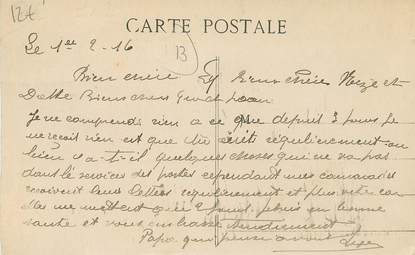 12t
CARTE POSTALE
Le 1er 2-16
13
Bien chère et bien chère
Bien chers
Je ne comprends rien a ce que depuis 3 jours je
ne recoit rien est que tu écrits régulièrement ou
bien y a-t-il quelques choses qui ne va pas
dans le service des postes cependant mes camarades
recoivent leurs lettres regulierement et plus vite car
elles ne mettent que 2 jours je suis en bonne
sante et vous embrasse tendrement
Papa qui pense a vous